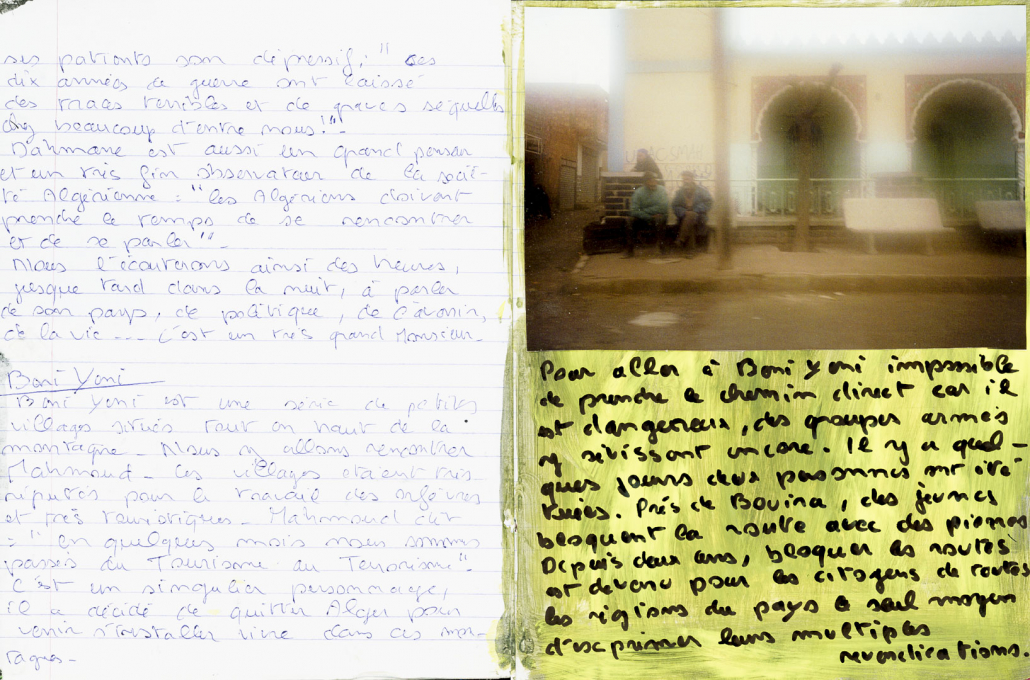 ses patients son dépressif; " ces
dix années de guerre ont laissé
des traces terribles et de graves séquelles
chez beaucoup d'entre nous!"-
Dahmane est aussi un grand penseur
et un très fin observateur de la socié-
té Algérienne : "les Algériens doivent
prendre le temps de se rencontrer
et de se parler"-
Nous l'écouterons ainsi des heures,
jusque tard dans la nuit, à parler
de son pays, de politique, de l'avenir,
de la vie --- C'est un très grand Monsieur-
Beni Yeni
Beni Yeni est une série de petits
villages situés tout en haut de la
montagne - Nous y allons rencontrer
Mahmoud - Ces villages étaient très
réputés pour le travail des orfèvres
et très touristiques - Mahmoud dit
: " en quelques mois nous sommes
passés du Tourisme au Terrorisme"
C'est un singulier personnage,
il a décidé de quitter Alger pour
venir s'installer vivre dans ces mon-
tagnes-
Pour aller à Beni Yeni impossible
de prendre le chemin direct car il
est dangereux, des groupes armés
y sévissent encore. Il y a quel-
ques jours deux personnes ont été
tuées. Près de Bouira, des jeunes
bloquent la route avec des pierres
Depuis deux ans, bloquer les routes
est devenu pour les citoyens de toutes
les régions du pays le seul moyen
d'exprimer leurs multiples
revendications.